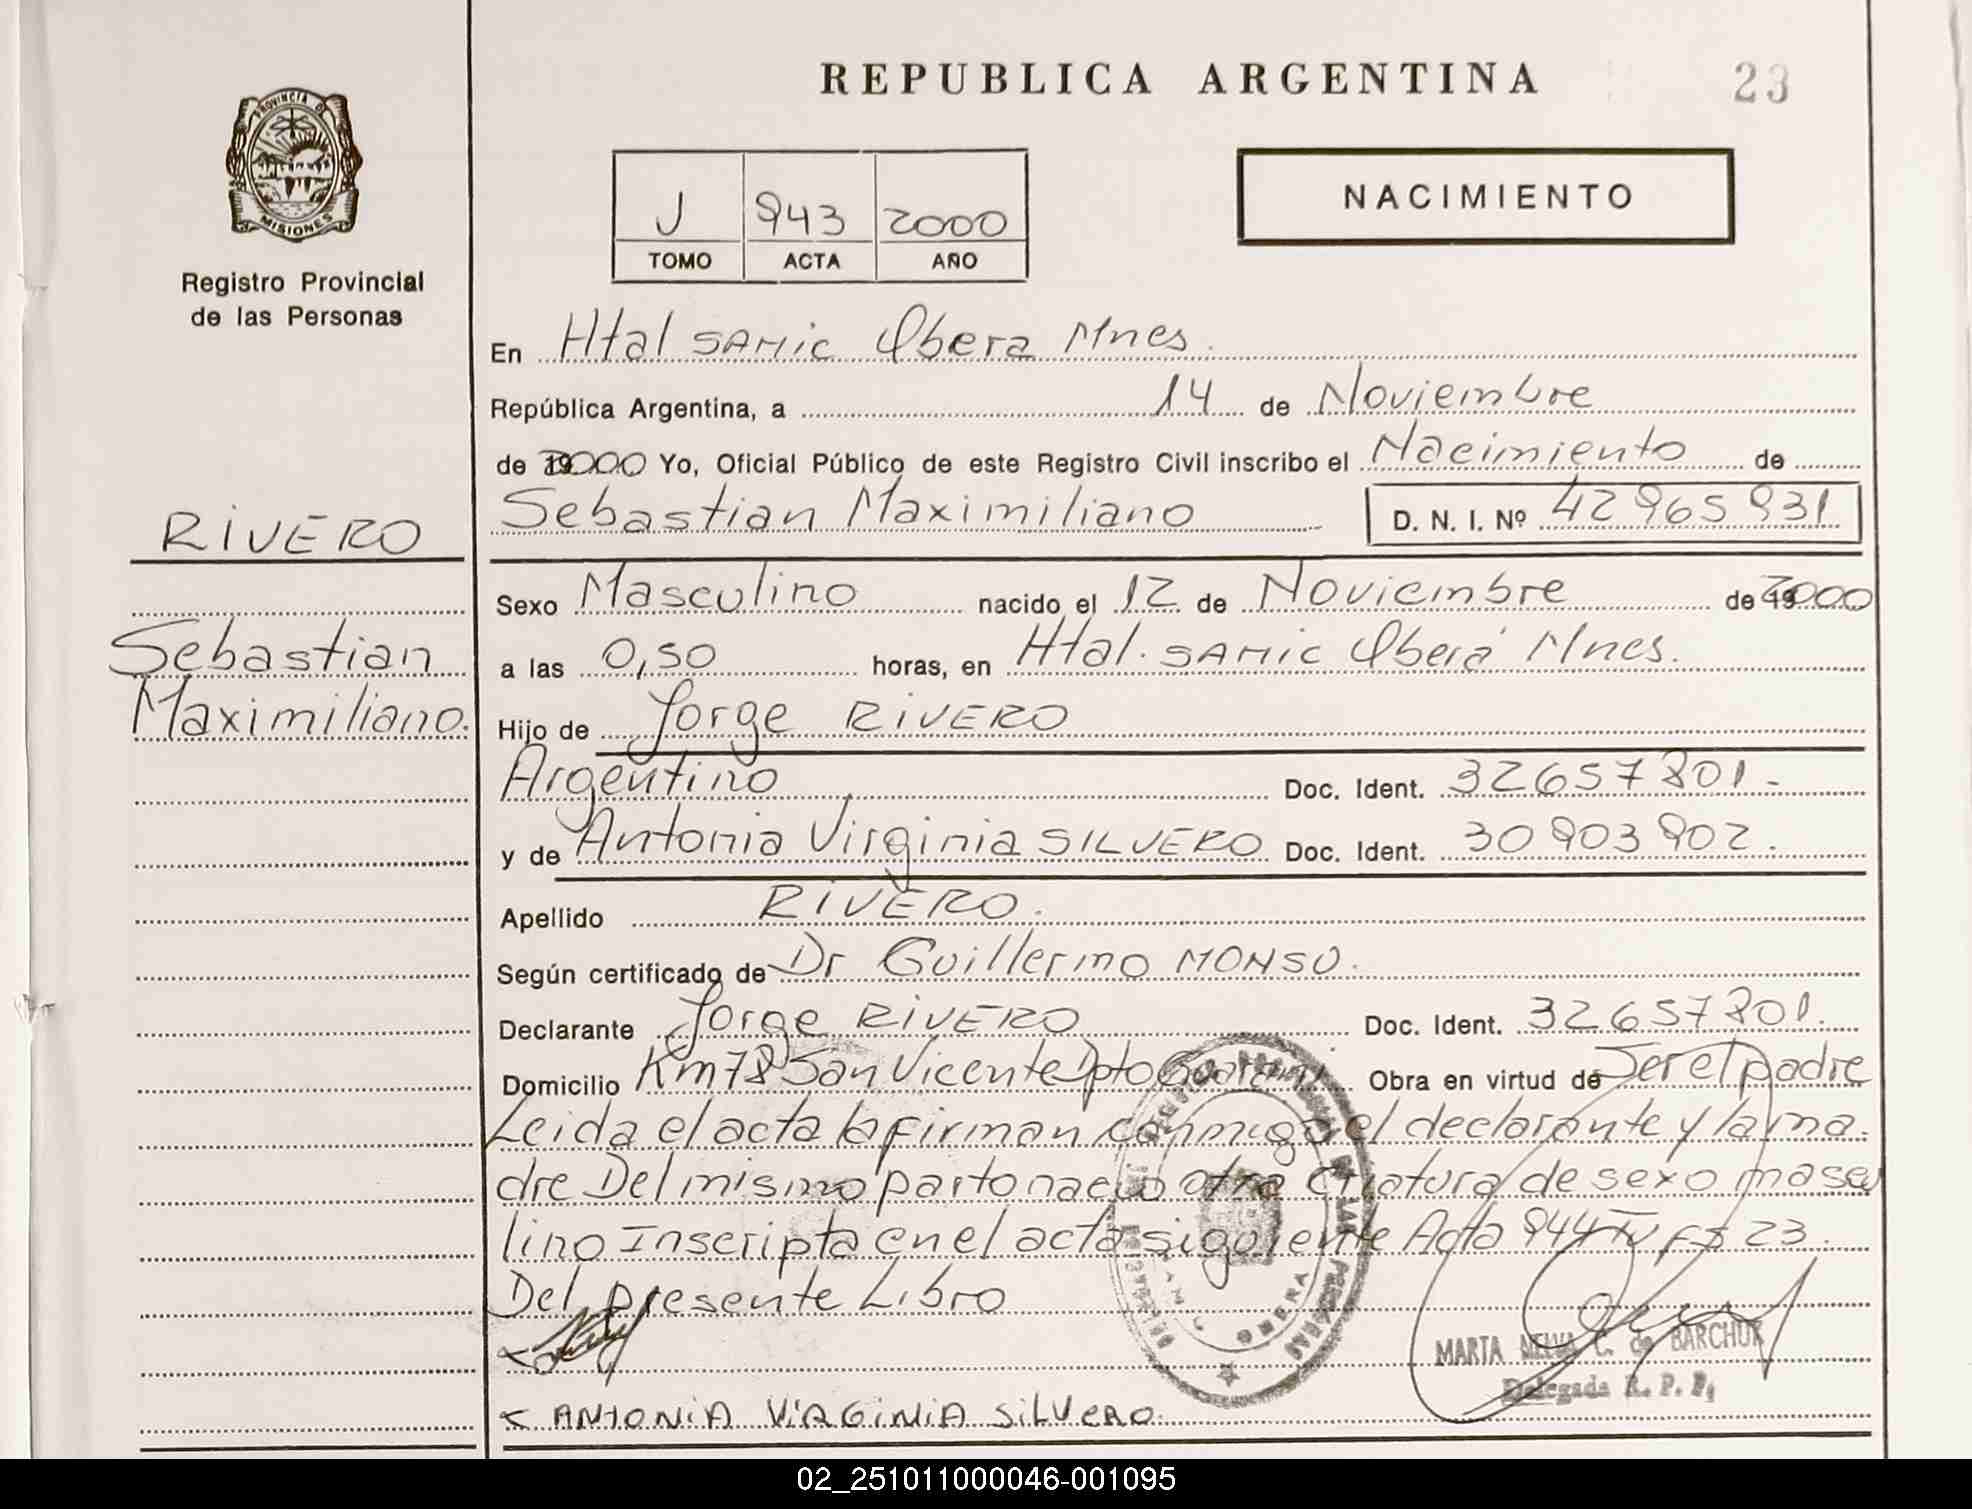 REPUBLICA ARGENTINA
23
PROVINCIA DE
MISIONES
Registro Provincial
de las Personas
J 943 2000
TOMO ACTA AÑO
NACIMIENTO
En Htal SAMIC Obera Mnes.
República Argentina, a 14 de Noviembre
de 2000 Yo, Oficial Público de este Registro Civil inscribo el Nacimiento de
Sebastian Maximiliano
D. N. I. Nº 42965931
RIVERO
Sebastian
Maximiliano.
Sexo Masculino nacido el 12 de Noviembre de 2000
a las 0,50 horas, en Htal. SAMIC Oberá Mnes.
Hijo de Jorge RIVERO
Argentino Doc. Ident. 32657801.-
y de Antonia Virginia SILVERO Doc. Ident. 30903902.
Apellido RIVERO.
Según certificado de Dr Guillermo MONSU.
Declarante Jorge RIVERO Doc. Ident. 32657801.
Domicilio Km78 San Vicente Dpto Guarani Obra en virtud de Ser el padre
Leida el acta la firman conmigo el declarante y la ma.
dre Del mismo parto nacio otra criatura de sexo mascu
lino Inscripta en el acta siguiente Acta 944 Tv Fs 23.
Del presente Libro
MARTA C. de BARCHUK
Delegada R. P. P.
ANTONIA VIRGINIA SILVERO.
02_251011000046-001095